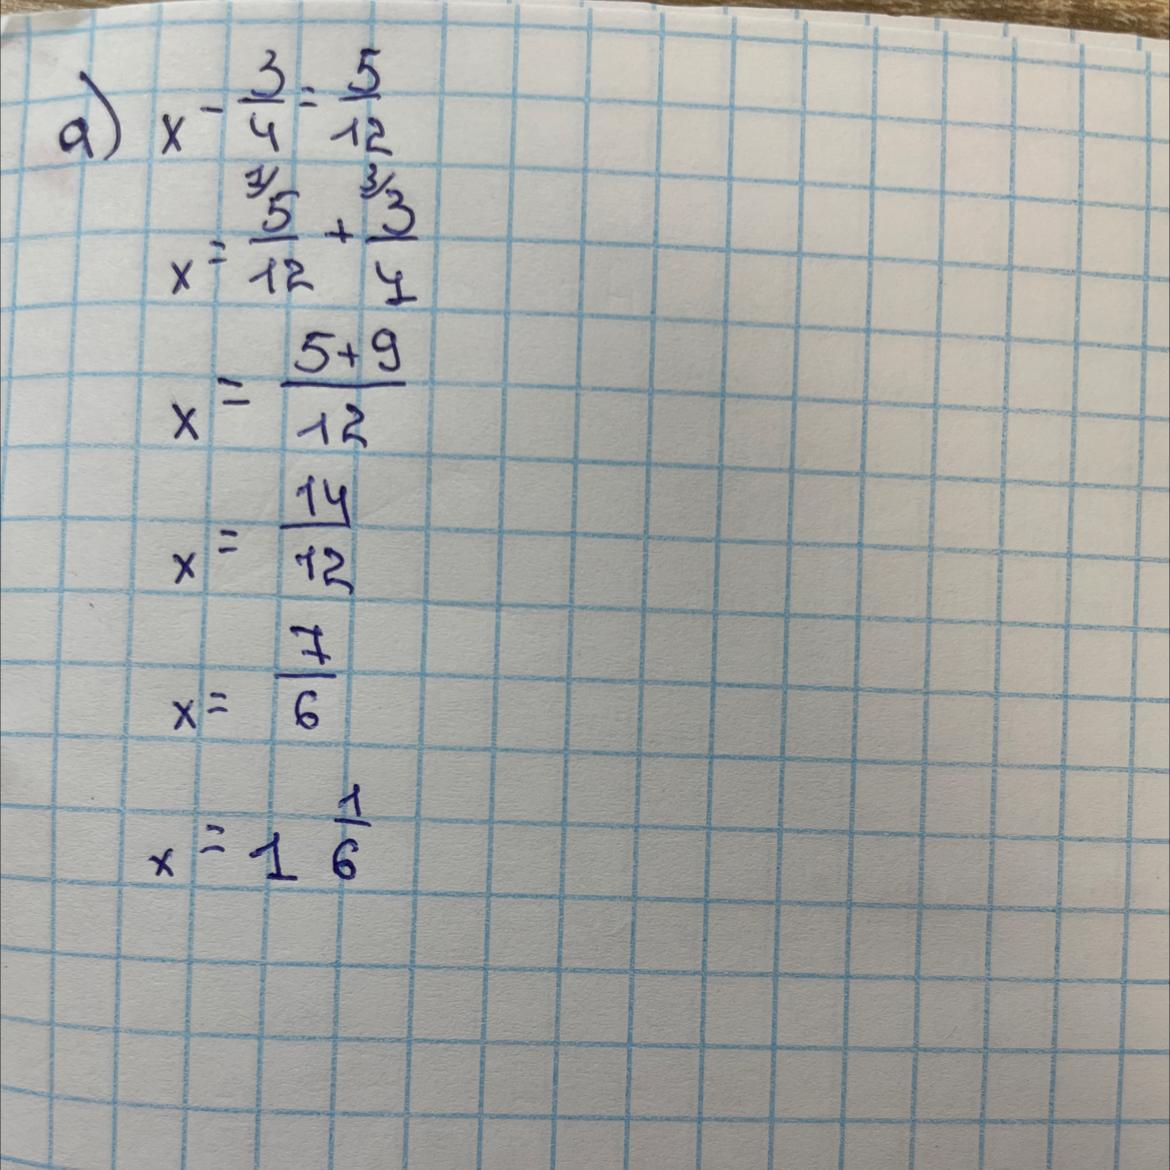 а) x - 3/4 = 5/12
x = 1/ 5/12 + 3/ 3/4
x = 5+9/12
x = 14/12
x = 7/6
x = 1 1/6